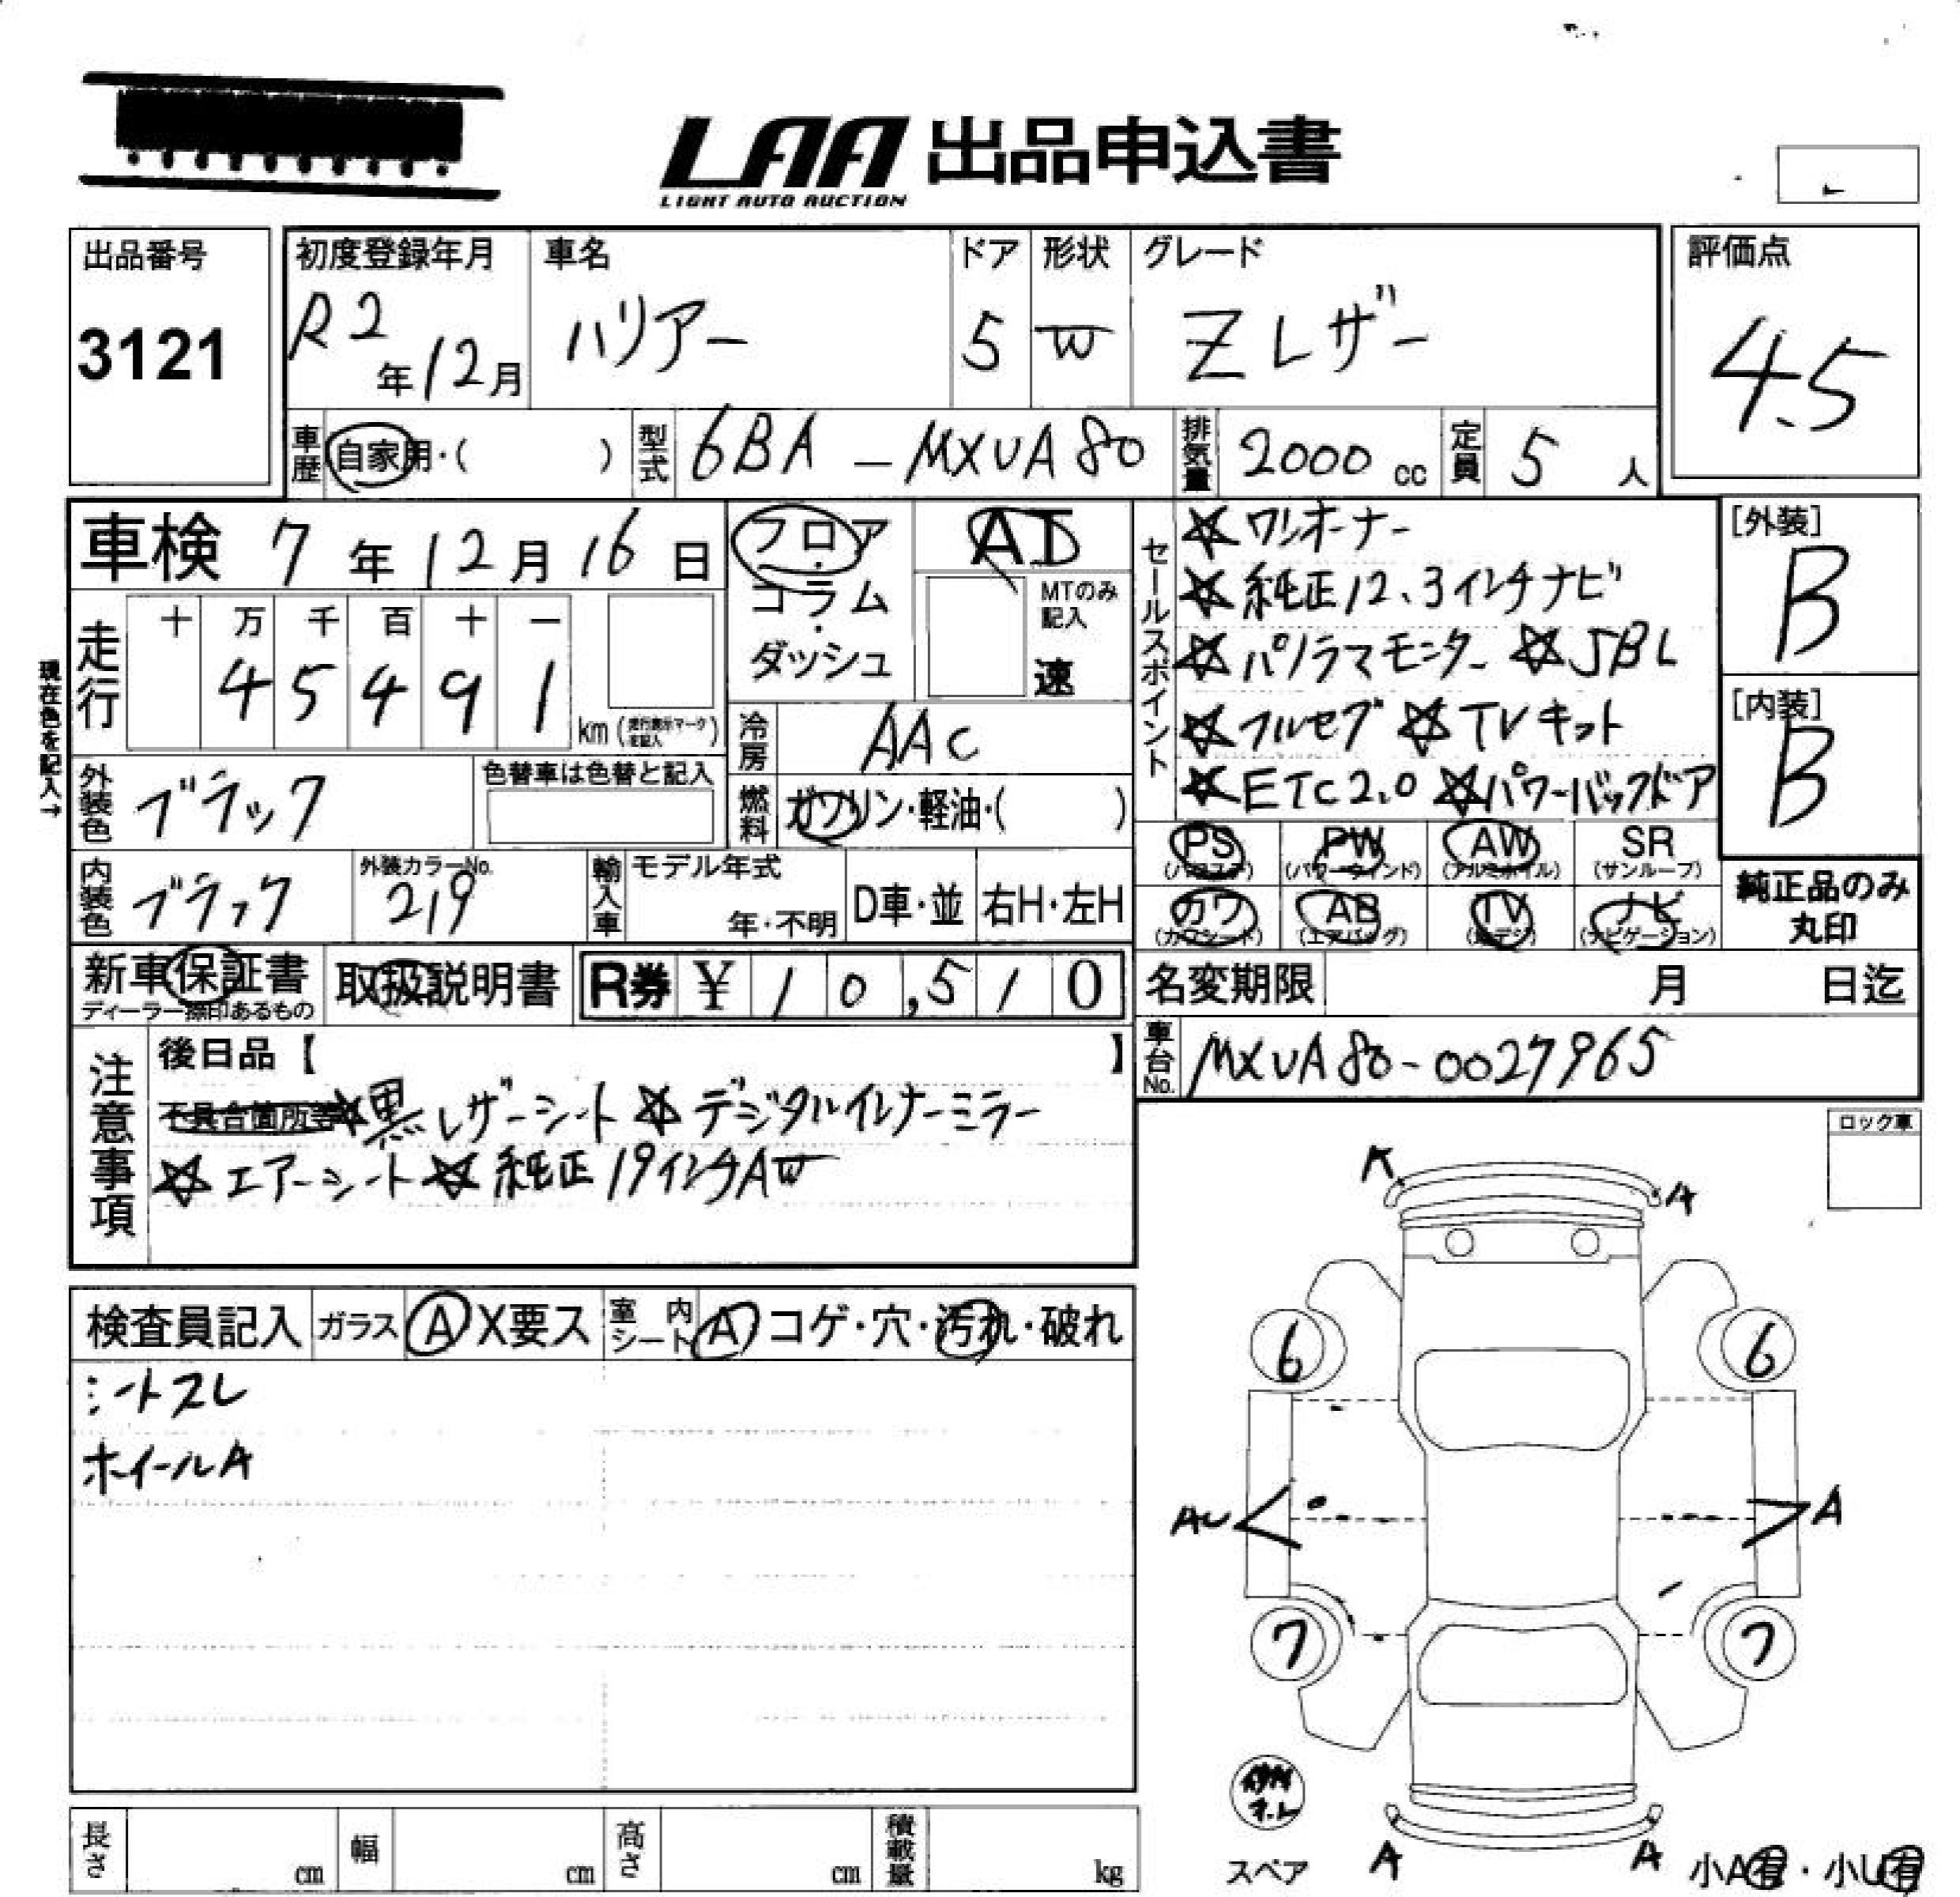 LAA 出品申込書
LIGHT AUTO AUCTION
出品番号
3121
初度登録年月
R2年12月
車名
ハリアー
ドア
5
形状
W
グレード
Zレザー
評価点
4.5
車歴 自家用・( )
型式 6BA-MXUA80
排気量 2000cc
定員 5人
車検 7年12月16日
現在色を記入→
走行 十 万 千 百 十 一
4 5 4 9 1 km
フロア・コラム・ダッシュ
AT
MTのみ記入
速
冷房 AAC
燃料 ガソリン・軽油・( )
外装色 ブラック
色替車は色替と記入
内装色 ブラック
外装カラーNo.
219
輸入車 モデル年式
年・不明
D車・並 右H・左H
セールスポイント
☆ワンオーナー
☆純正12.3インチナビ
☆パノラマモニター ☆JBL
☆フルセグ ☆TVキット
☆ETC2.0 ☆パワーバックドア
[外装]
B
[内装]
B
PS PW AW SR
(パワステ) (パワーウィンド) (アルミホイル) (サンルーフ)
カワ AB TV ナビ
(カワシート) (エアバッグ) (地デジ) (ナビゲーション)
純正品のみ丸印
新車保証書
ディーラー捺印あるもの
取扱説明書
R券 ¥10,510
名変期限 月 日迄
車台No. MXUA80-0027965
注意事項
後日品【 】
不具合箇所等
☆黒レザーシート ☆デジタルインナーミラー
☆エアーシート ☆純正19インチAW
ロック車
検査員記入 ガラス A X要ス 室内シート A コゲ・穴・汚れ・破れ
シートスレ
ホイールA
A
A
6
6
AU
A
7
7
スペア
A
A
小A有・小U有
長さ cm 幅 cm 高さ cm 積載量 kg